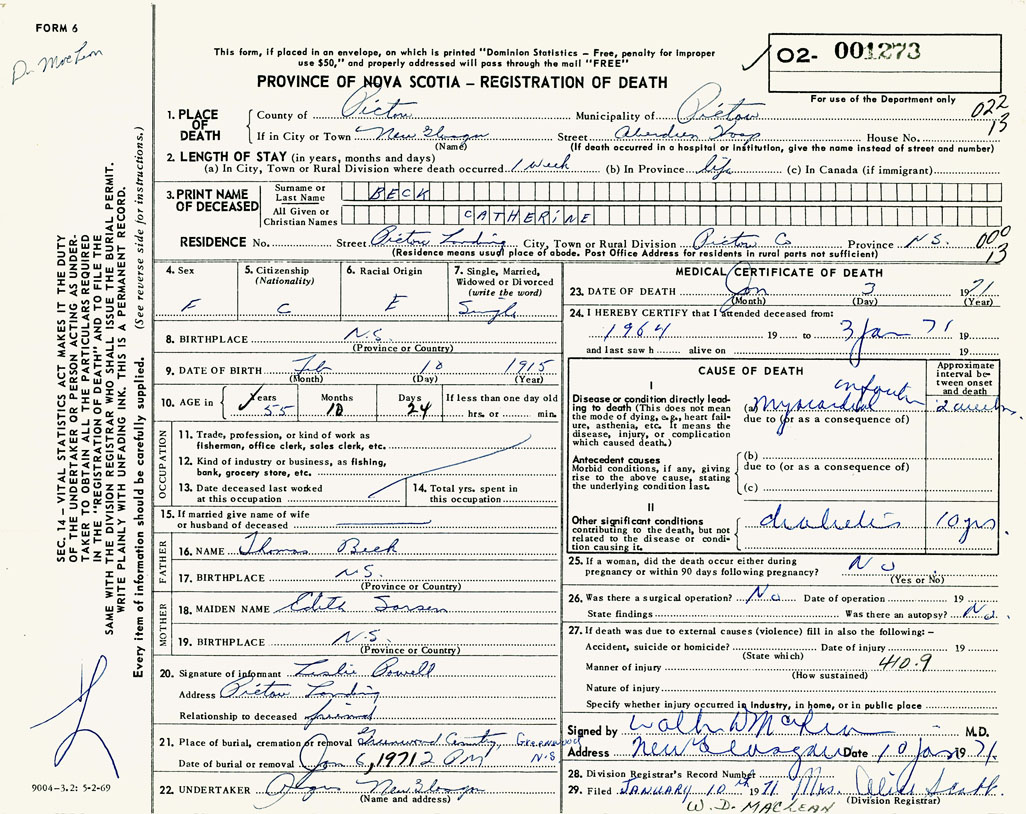 FORM 6
Dr MacLean
This form, if placed in an envelope, on which is printed "Dominion Statistics – Free, penalty for improper
use $50," and properly addressed will pass through the mail "FREE"
PROVINCE OF NOVA SCOTIA – REGISTRATION OF DEATH
O2- 001273
For use of the Department only
022
13
1. PLACE OF DEATH
County of Pictou Municipality of Pictou
If in City or Town New Glasgow Street Aberdien Hosp House No.
(Name) (If death occurred in a hospital or institution, give the name instead of street and number)
2. LENGTH OF STAY (in years, months and days)
(a) In City, Town or Rural Division where death occurred 1 week (b) In Province life (c) In Canada (if immigrant)
3. PRINT NAME OF DECEASED
Surname or Last Name BECK
All Given or Christian Names CATHERINE
RESIDENCE No. Street Pictou Landing City, Town or Rural Division Pictou Co Province N.S.
(Residence means usual place of abode. Post Office Address for residents in rural parts not sufficient)
000
13
4. Sex
F
5. Citizenship
(Nationality)
C
6. Racial Origin
E
7. Single, Married,
Widowed or Divorced
(write the word)
Single
8. BIRTHPLACE N.S.
(Province or Country)
9. DATE OF BIRTH Feb 10 1915
(Month) (Day) (Year)
10. AGE in Years Months Days If less than one day old
55 10 24 hrs. or min.
OCCUPATION
11. Trade, profession, or kind of work as
fisherman, office clerk, sales clerk, etc.
12. Kind of industry or business, as fishing,
bank, grocery store, etc.
13. Date deceased last worked
at this occupation
14. Total yrs. spent in
this occupation
15. If married give name of wife
or husband of deceased
FATHER
16. NAME Thomas Beck
17. BIRTHPLACE N.S.
(Province or Country)
MOTHER
18. MAIDEN NAME Edith
19. BIRTHPLACE N.S.
(Province or Country)
20. Signature of informant Leslie Powell
Address Pictou Landing
Relationship to deceased friend
21. Place of burial, cremation or removal Greenwood Cemetery, GREENWOOD N.S
Date of burial or removal Jan 6, 1971 2 PM
22. UNDERTAKER New Glasgow
(Name and address)
MEDICAL CERTIFICATE OF DEATH
23. DATE OF DEATH Jan 3 1971
(Month) (Day) (Year)
24. I HEREBY CERTIFY that I attended deceased from:
1964 19 to 3 Jan 71 19
and last saw h alive on 19
CAUSE OF DEATH
Approximate
interval be-
tween onset
and death
I
Disease or condition directly lead-
ing to death (This does not mean
the mode of dying, e.g., heart fail-
ure, asthenia, etc. It means the
disease, injury, or complication
which caused death.)
(a) Myocardial infarction 2 weeks
due to (or as a consequence of)
Antecedent causes
Morbid conditions, if any, giving
rise to the above cause, stating
the underlying condition last.
(b)
due to (or as a consequence of)
(c)
II
Other significant conditions
contributing to the death, but not
related to the disease or condi-
tion causing it.
diabetis 10 yrs
25. If a woman, did the death occur either during
pregnancy or within 90 days following pregnancy? No
(Yes or No)
26. Was there a surgical operation? No Date of operation 19
State findings Was there an autopsy? No.
27. If death was due to external causes (violence) fill in also the following: –
Accident, suicide or homicide? Date of injury 19
(State which)
Manner of injury 410.9
(How sustained)
Nature of injury
Specify whether injury occurred in industry, in home, or in public place
Signed by M.D.
Address New Glasgow Date 10 Jan 1971.
28. Division Registrar's Record Number
29. Filed JANUARY 10th 1971 Mrs. Alice Scott
(Division Registrar)
W. D. MACLEAN
SEC. 14 – VITAL STATISTICS ACT MAKES IT THE DUTY
OF THE UNDERTAKER OR PERSON ACTING AS UNDER-
TAKER TO OBTAIN ALL THE PARTICULARS REQUIRED
IN THE "REGISTRATION OF DEATH" AND TO FILE THE
SAME WITH THE DIVISION REGISTRAR WHO SHALL ISSUE THE BURIAL PERMIT.
WRITE PLAINLY WITH UNFADING INK. THIS IS A PERMANENT RECORD.
Every item of information should be carefully supplied. (See reverse side for instructions.)
9004-3.2: 5-2-69